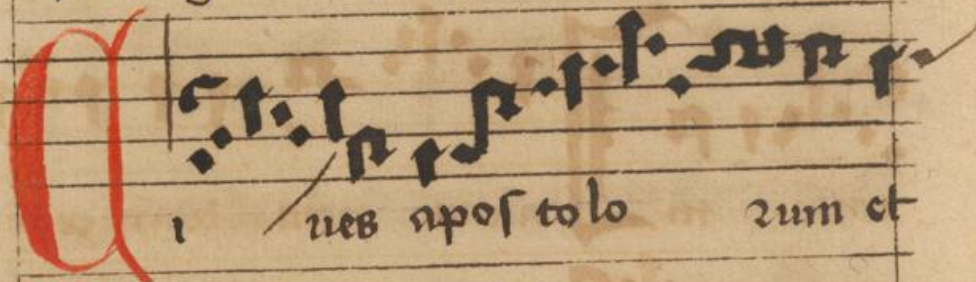 Ci ues apos tolo rum et